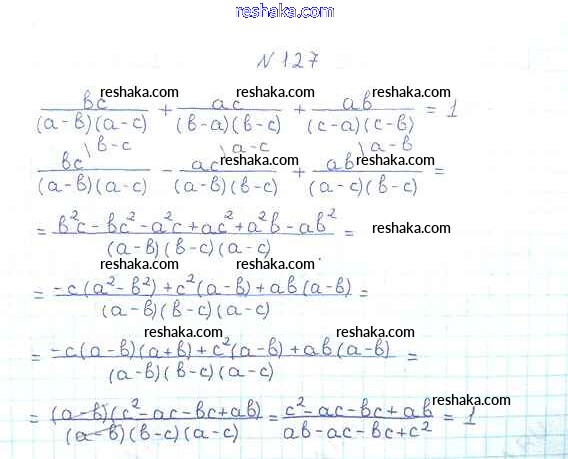 reshaka.com
№127
reshaka.com reshaka.com reshaka.com
bc/((a-b)(a-c)) + ac/((b-a)(b-c)) + ab/((c-a)(c-b)) = 1
reshaka.com reshaka.com reshaka.com
bc\b-c/((a-b)(a-c)) - ac\a-c/((a-b)(b-c)) + ab\a-b/((a-c)(b-c)) =
= (b²c - bc² - a²c + ac² + a²b - ab²)/((a-b)(b-c)(a-c)) = reshaka.com
reshaka.com reshaka.com
= (-c(a²-b²) + c²(a-b) + ab(a-b))/((a-b)(b-c)(a-c)) =
reshaka.com reshaka.com
= (-c(a-b)(a+b) + c²(a-b) + ab(a-b))/((a-b)(b-c)(a-c)) =
reshaka.com reshaka.com
= ((a-b)(c²-ac-bc+ab))/((a-b)(b-c)(a-c)) = (c²-ac-bc+ab)/(ab-ac-bc+c²) = 1
reshaka.com